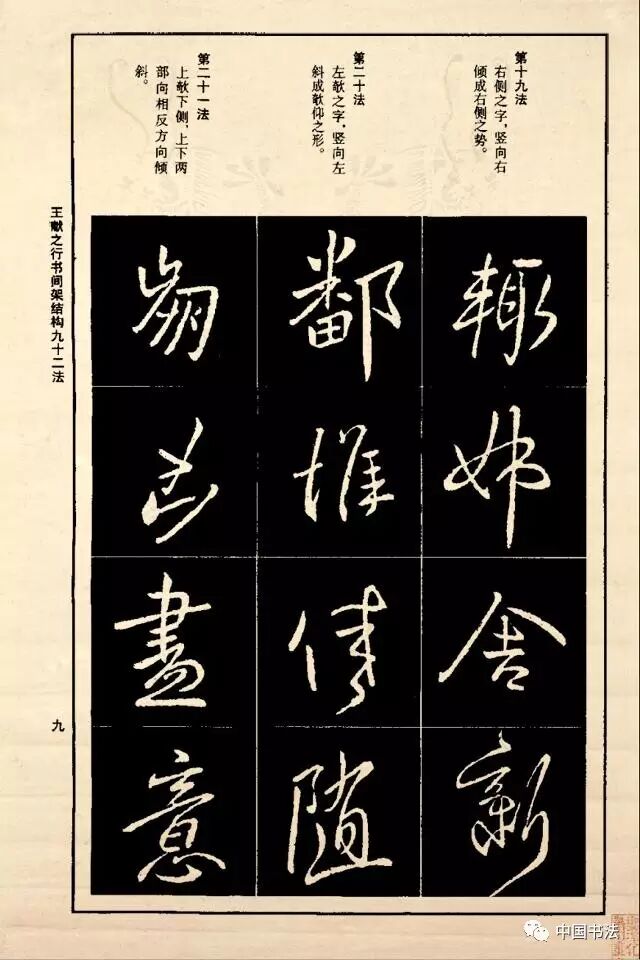 第十九法
右侧之字，竖向右
倾成右侧之势。
第二十法
左欹之字，竖向左
斜成欹仰之形。
第二十一法
上欹下侧，上下两
部向相反方向倾
斜。
輙
姊
舍
新
鄱
惟
随
盡
意
王献之行书间架结构九十二法
九
中国书法